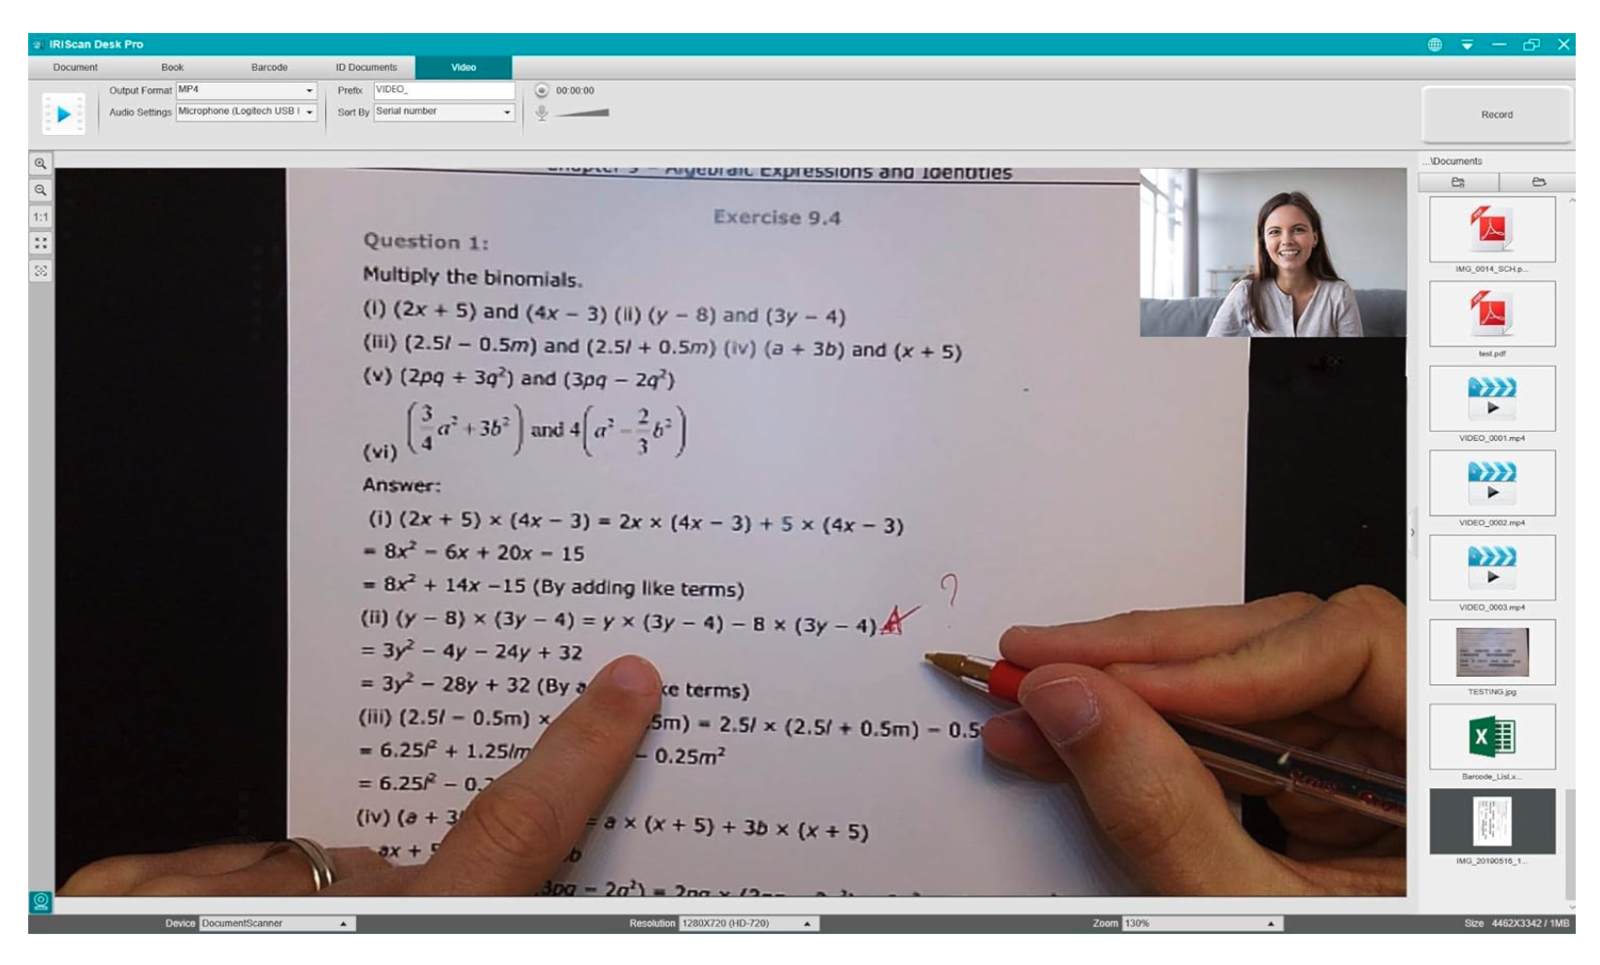 IRIScan Desk Pro
Document Book Barcode ID Documents Video
Output Format MP4 Prefix VIDEO_ 00:00:00
Audio Settings Microphone (Logitech USB Sort By Serial number
Record
...\Documents
1:1
Algebraic Expressions and Identities
Exercise 9.4
Question 1:
Multiply the binomials.
(i) (2x + 5) and (4x − 3) (ii) (y − 8) and (3y − 4)
(iii) (2.5l − 0.5m) and (2.5l + 0.5m) (iv) (a + 3b) and (x + 5)
(v) (2pq + 3q²) and (3pq − 2q²)
(vi) (3/4 a² + 3b²) and 4(a² − 2/3 b²)
Answer:
(i) (2x + 5) × (4x − 3) = 2x × (4x − 3) + 5 × (4x − 3)
= 8x² − 6x + 20x − 15
= 8x² + 14x −15 (By adding like terms)
?
(ii) (y − 8) × (3y − 4) = y × (3y − 4) − 8 × (3y − 4)
= 3y² − 4y − 24y + 32
= 3y² − 28y + 32 (By terms)
(iii) (2.5l − 0.5m) × 5m) = 2.5l × (2.5l + 0.5m) − 0.5
= 6.25l² + 1.25lm − 0.25m²
= 6.25l² − 0.
(iv) (a + 3 = a × (x + 5) + 3b × (x + 5)
ax + b
3pq − 2q²) =
IMG_0014_SCH.p...
test.pdf
VIDEO_0001.mp4
VIDEO_0002.mp4
VIDEO_0003.mp4
TESTING.jpg
Barcode_List.x...
IMG_20190516_1...
Device DocumentScanner Resolution 1280X720 (HD-720) Zoom 130% Size 4462X3342 / 1MB